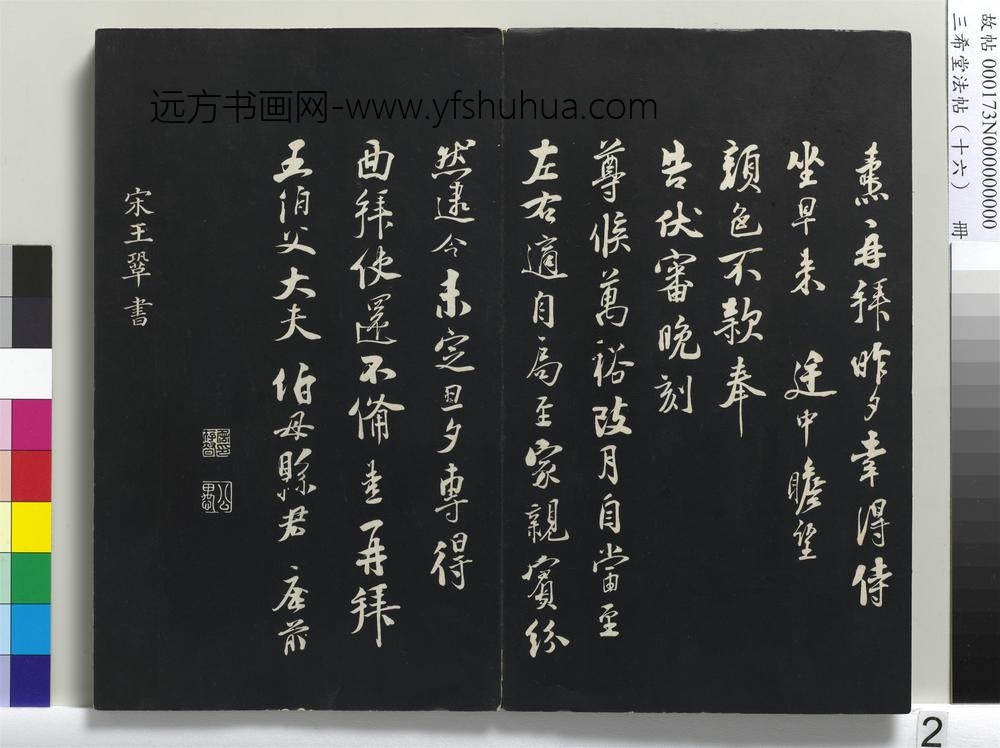 熏〻再拜昨夕幸得侍
坐早来 途中瞻望
顔色不款奉
告伏審晚刻
尊候萬裕改月自當至
左右適自局至家親賓紛
然逮今未定旦夕專得
面拜使還不備 再拜
王伯父大夫 伯母縣君 座前
宋王鞏書
远方书画网-www.yfshuhua.com
故帖 000173N000000000
三希堂法帖(十六) 冊
2